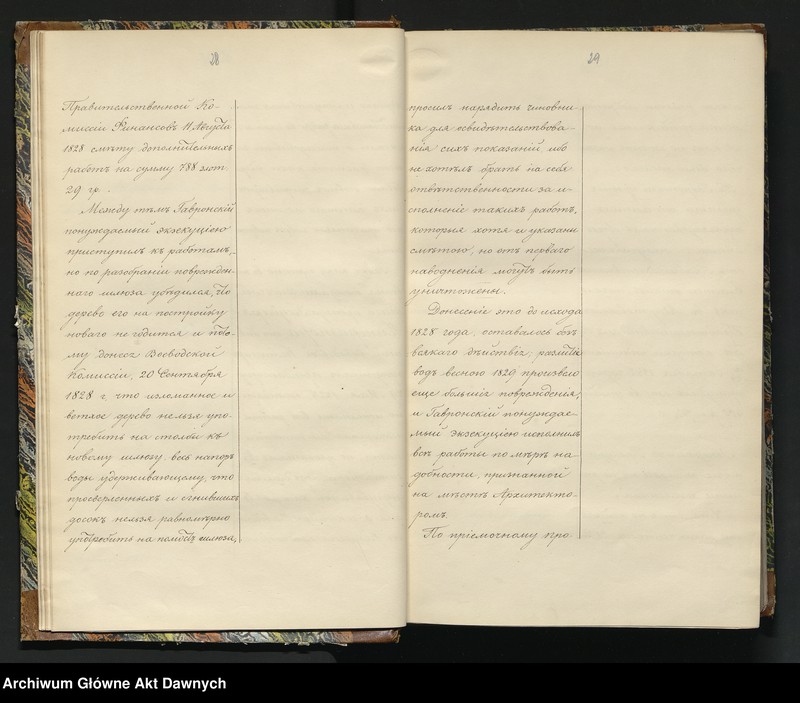 28
Правительственной Ко-
миссіи Финансовъ 11 Августа
1828 смѣту дополнительныхъ
работъ на сумму 788 злот.
29 гр.
Между тѣмъ Гавронскій
понуждаемый экзекуціею
приступилъ къ работамъ,
но по разобраніи поврежден-
наго шлюза убѣдился, что
дерево его на постройку
новаго не годится и пото-
му донесъ Воеводской
Коммисіи, 20 Сентября
1828 г. что изломанное и
ветхое дерево нельзя упо-
требить на столбы къ
новому шлюзу, весь напоръ
воды удерживающему, что
просверленныхъ и сгнившихъ
досокъ нельзя равномѣрно
употребить на помостъ шлюза,
29
просилъ нарядить чиновни-
ка для освидѣтельствова-
нія сихъ показаній ибо
не хотѣлъ брать на себя
отвѣтственности за и-
сполненіе такихъ работъ,
которыя хотя и указаны
смѣтою, но отъ перваго
наводненія могутъ быть
уничтожены.
Донесеніе это до исхода
1828 года, оставалось безъ
всякаго дѣйствія; разлитіе
водъ весною 1829 произвело
еще большія поврежденія,
и Гавронскій понуждае-
мый экзекуціею исполнилъ
всѣ работы по мѣрѣ на-
добности, признанной
на мѣстѣ Архитекто-
ромъ.
По пріемочному про-
Archiwum Główne Akt Dawnych